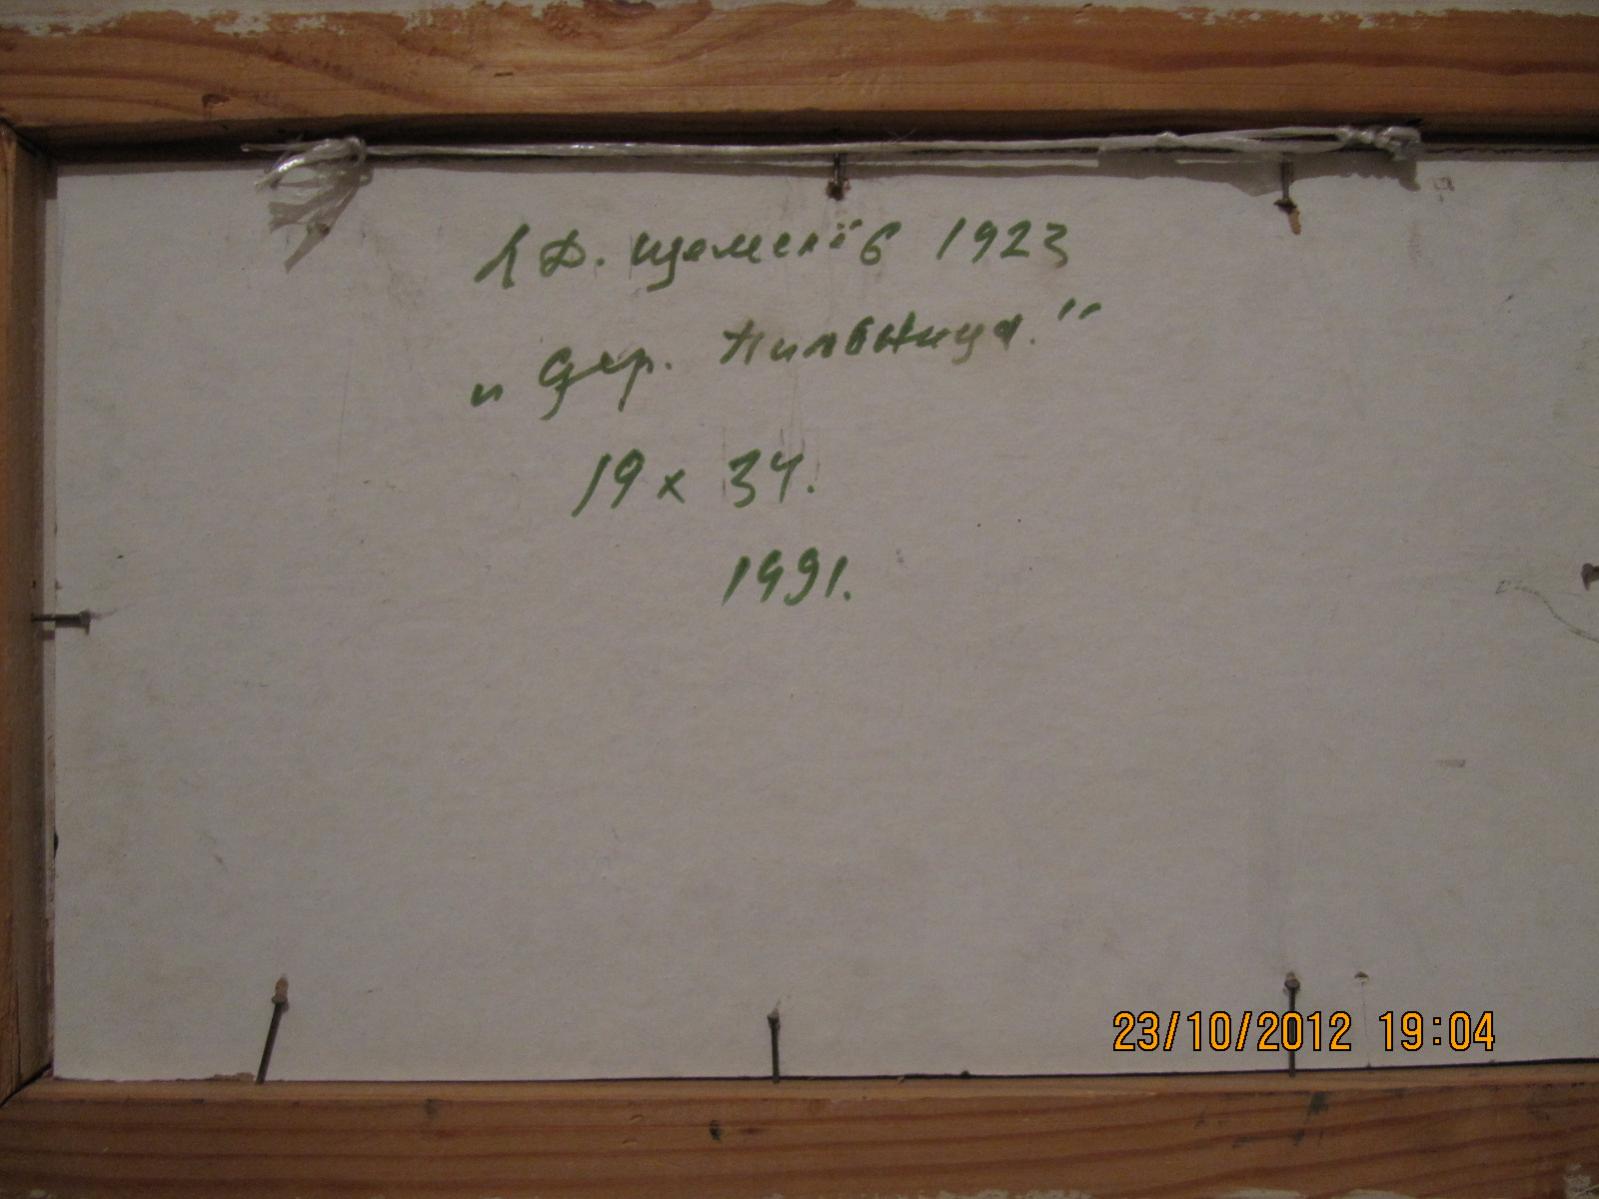 Л Д. Щемелёв 1923
„ дер. Пильница."
19 х 34.
1991.
23/10/2012 19:04